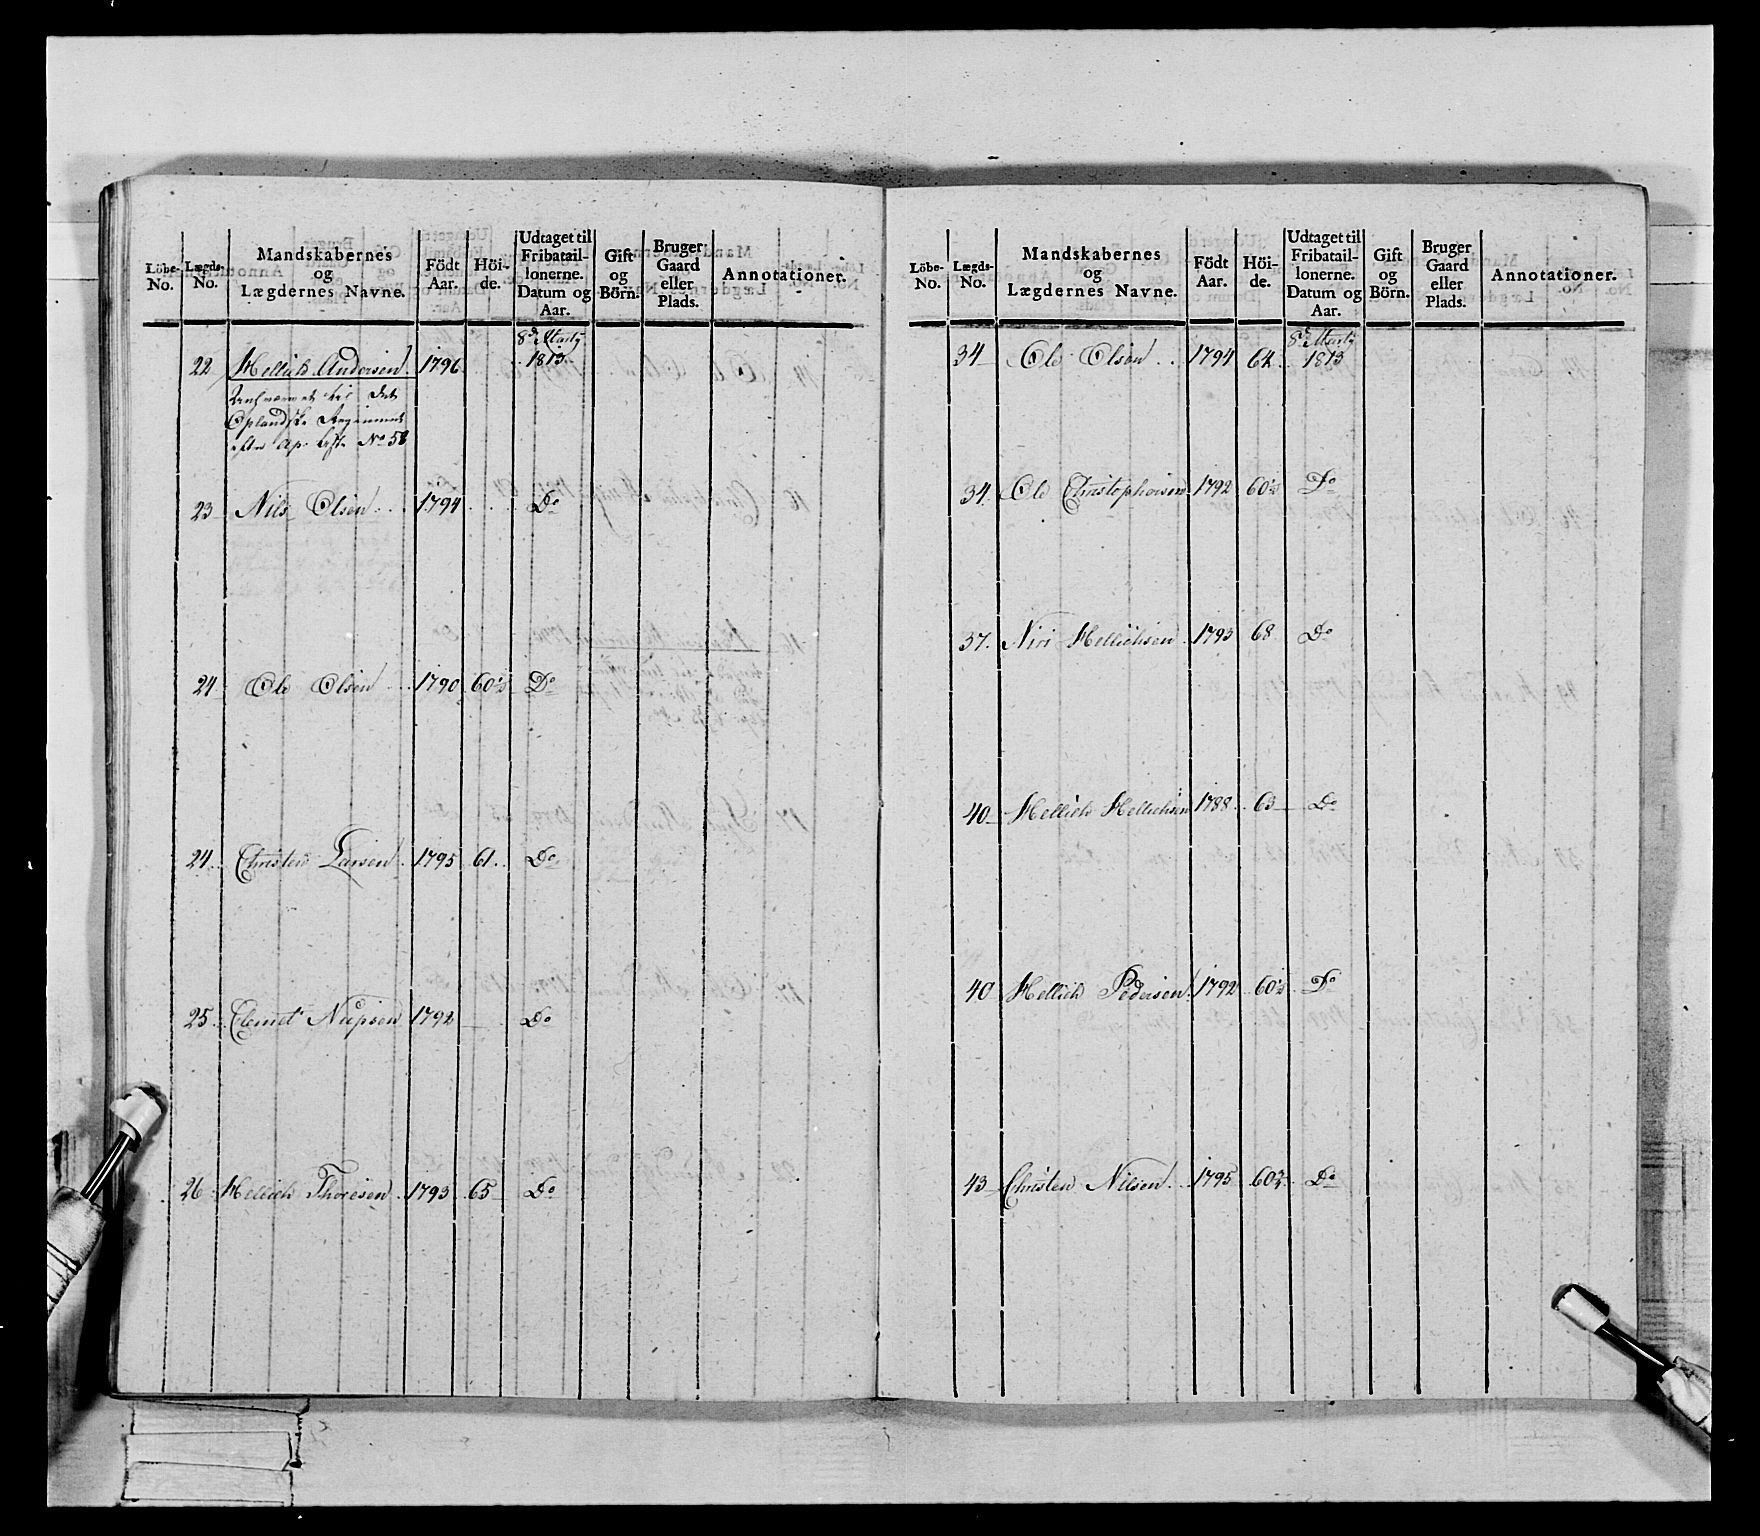 Löbe-No. Lægds-No. Mandskabernes og Lægdernes Navne. Födt Aar. Höi-de. Udtaget til Fribatail-lonerne. Datum og Aar. Gift og Börn. Bruger Gaard eller Plads. Annotationer.
22 Hellich Andersen 1796 8de Martij 1813
til det
Oplandske Regiment
No 58
23 Nils Olsen 1794 Do
24 Ole Olsen 1790 60½ Do
24 Christen Larsen 1795 61 Do
25 Clemet 1792 Do
26 Hellich Thoresen 1793 65 Do
Löbe-No. Lægds-No. Mandskabernes og Lægdernes Navne. Födt Aar. Höi-de. Udtaget til Fribatail-lonerne. Datum og Aar. Gift og Börn. Bruger Gaard eller Plads. Annotationer.
34 Ole Olsen 1794 64 8de Martij 1813
34 Ole Christophersen 1792 60½ Do
37 Niri Hellichsen 1793 68 Do
40 Hellich Hellichsen 1788 63 Do
40 Hellich Pedersen 1792 60½ Do
43 Christen Nilsen 1795 Do